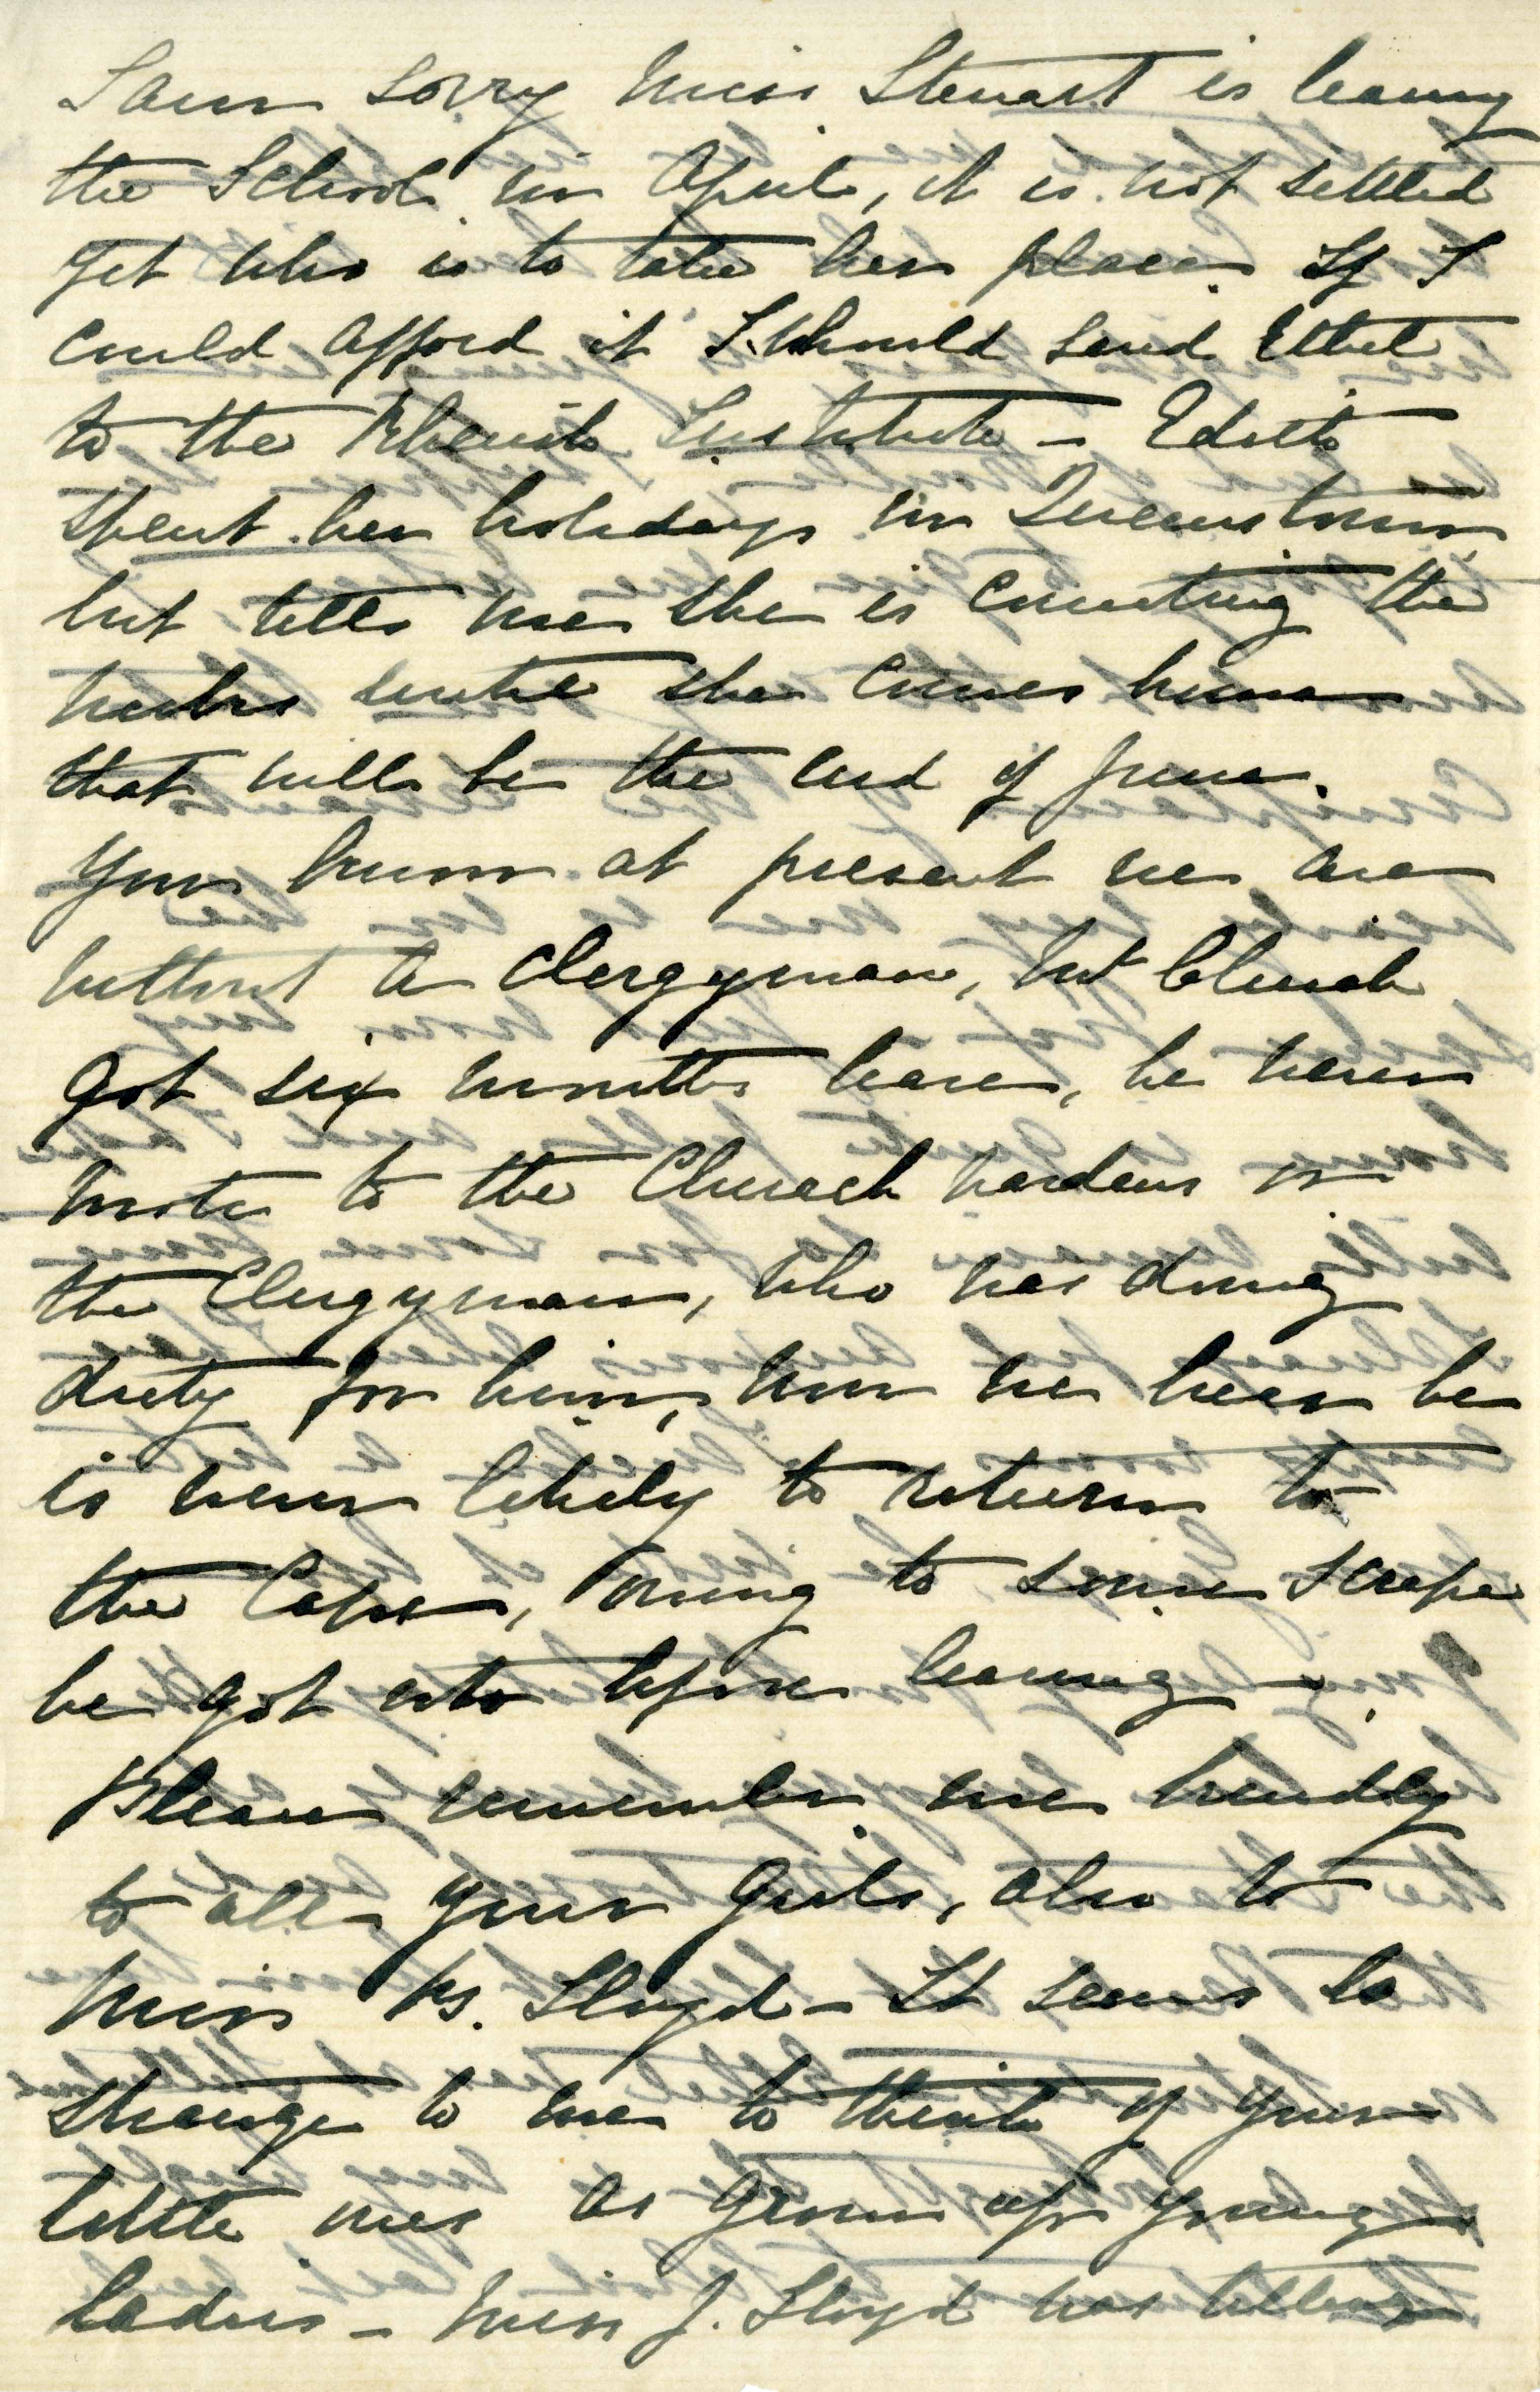 I am sorry Miss Stewart is leaving
the School in April, it is not settled
yet who is to take her place. If I
could afford it I should send Ethel
to the Rhenish Institute – Edith
spent her holidays in Queenstown,
but tells me she is counting the
weeks until she comes home
that will be the end of June.
You know at present we are
without a Clergyman, Mr Church
got six months leave, he never
wrote to the Church wardens or
the Clergyman, who was doing
duty for him, now we hear he
is never likely to return to
the Cape, owing to some scrape
he got into before leaving –.
Please remember me kindly
to all your girls, also to
Miss M. Lloyd – It seems so
strange to me to think of your
little ones as grown up young
ladies – Miss J. Lloyd was telling